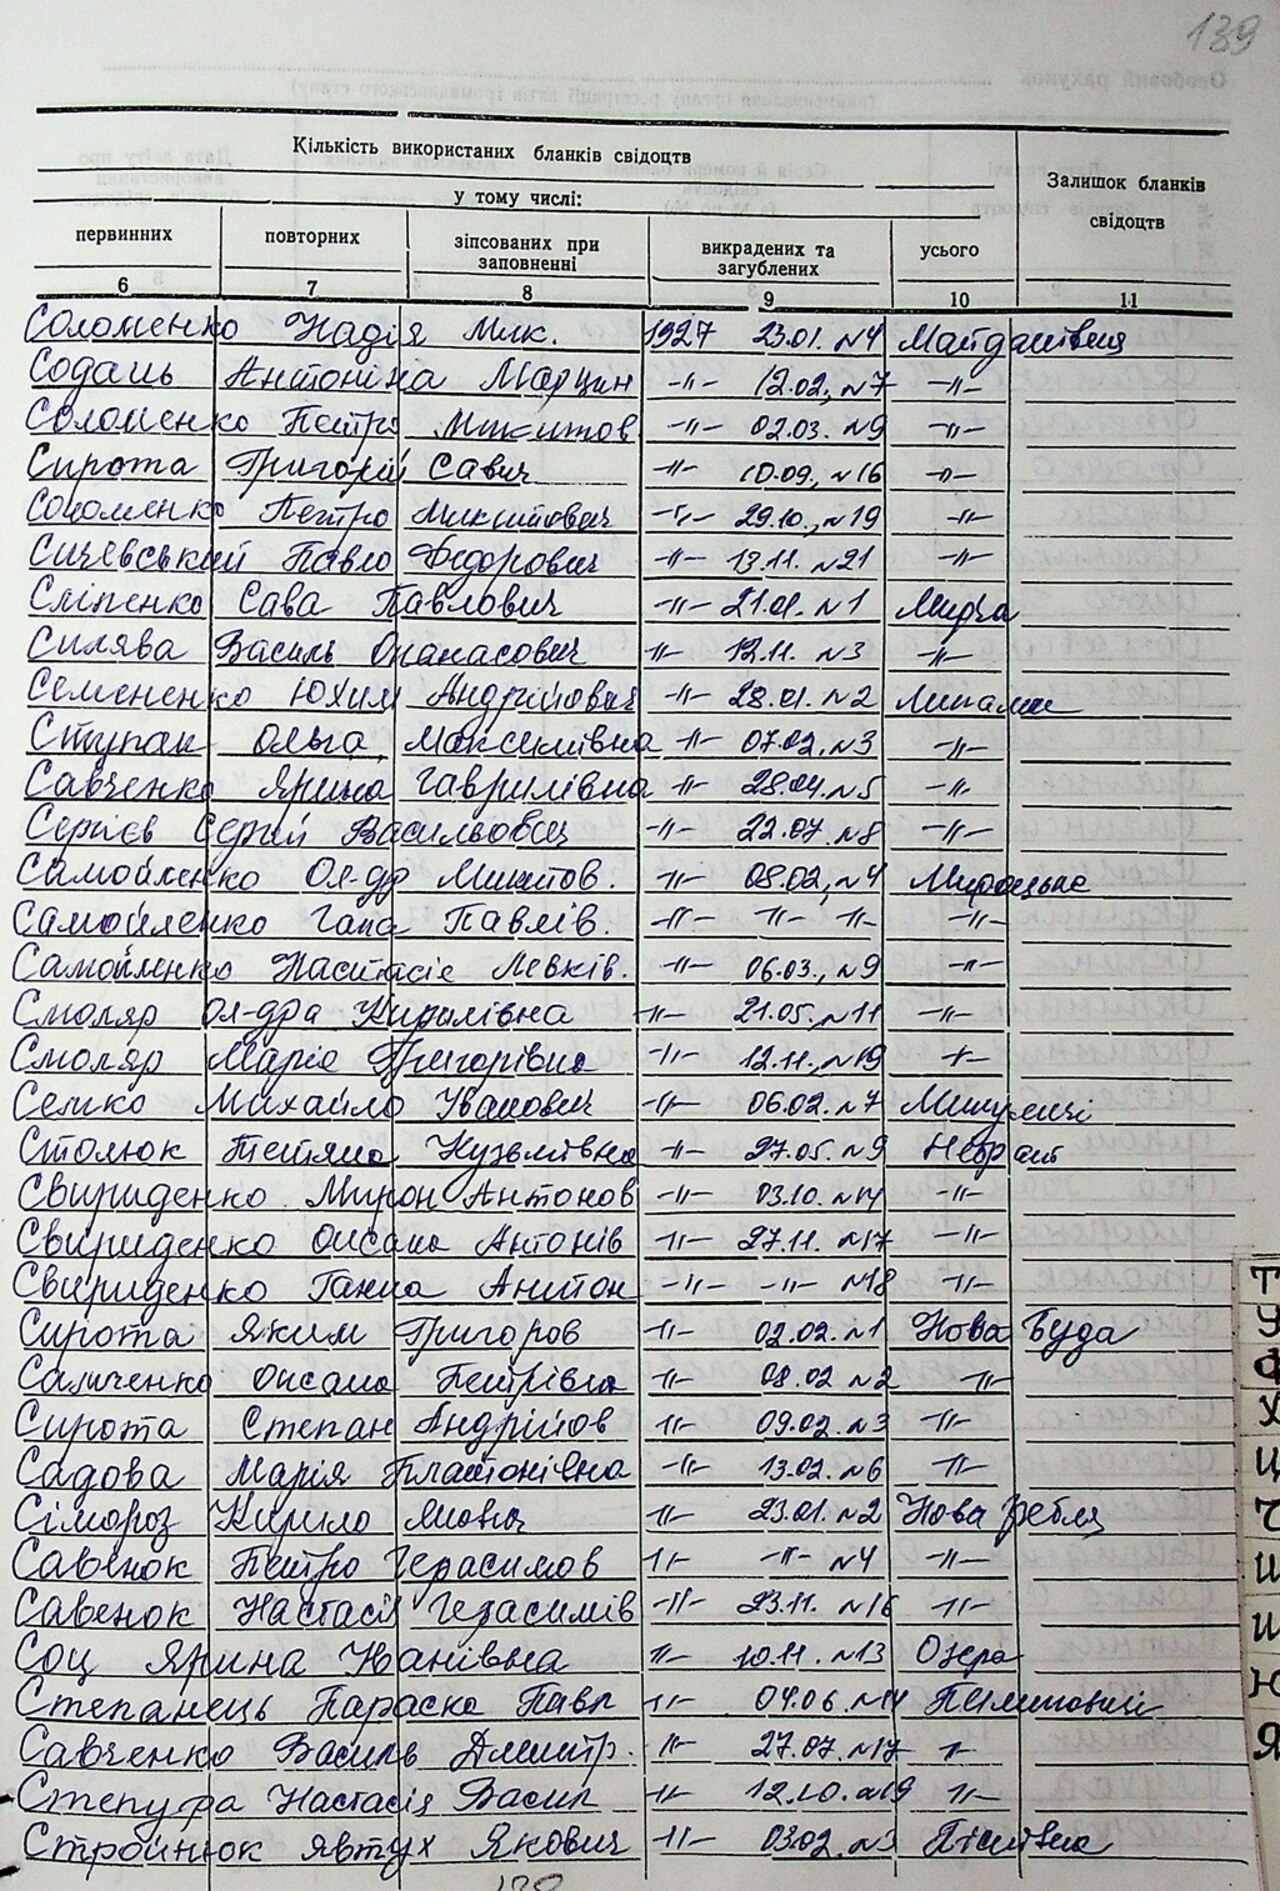 139
Кількість використаних бланків свідоцтв
Залишок бланків свідоцтв
у тому числі:
первинних повторних зіпсованих при заповненні викрадених та загублених усього
6 7 8 9 10 11
Соломенко Надія Мик. 1927 23.01. №4 Майданівка
Содань Антоніна Марцин -"- 12.02, №7 -"-
Соломенко Петро Микитов -"- 02.03. №9 -"-
Сирота Григорій Савич -"- 10.09., №16 -"-
Соломенко Петро Микитович -"- 29.10., №19 -"-
Сичевський Павло Федорович -"- 13.11. №21 -"-
Сліпенко Сава Павлович -"- 21.01. №1 Мирча
Силява Василь Опанасович -"- 12.11. №3 -"-
Семененко Юхим Андрійович -"- 28.01. №2
Ступак Ольга Максимівна -"- 07.02. №3 -"-
Савченко Ярина Гаврилівна -"- 28.04. №5 -"-
Сергієв Сергій Васильович -"- 22.07 №8 -"-
Самойленко Ол-др Микитов. -"- 08.02, №4 Мироцьке
Самойленко Гапа Павлів. -"- -"- -"- -"-
Самойленко Настасіє Левків. -"- 06.03., №9 -"-
Смоляр Ол-дра Кирилівна -"- 21.05., №11 -"-
Смоляр Маріє Григорівна -"- 12.11., №19 -"-
Семко Михайло Іванович -"- 06.02. №7 Микуличі
Столюк Тетяна Кузьмівна -"- 27.05. №9 Небрат
Свириденко Мирон Антонов -"- 03.10. №14 -"-
Свириденко Оксана Антонів -"- 27.11. №17 -"-
Свириденко Ганна Антон -"- -"- №18 -"-
Сирота Яким Григоров -"- 02.02. №1 Нова Буда
Саличенко Оксана Петрівна -"- 08.02 №2 -"-
Сирота Степан Андрійов -"- 09.02. №3 -"-
Садова Марія Платонівна -"- 13.02. №6 -"-
Сімороз Кирило -"- 23.01. №2 Нова Гребля
Савенок Петро Герасимов -"- -"- №4 -"-
Савенок Настасія Герасимів -"- 23.11. №16 -"-
Соц Ярина Іванівна -"- 10.11. №13 Озера
Степанець Параска Павл -"- 04.06. №14 Пилиповичі
Савченко Василь Дмитр. -"- 27.07. №17 -"-
Степура Настасія Васил -"- 12.10. №19 -"-
Стройнюк Явтух Якович -"- 03.02. №3 Пісківка
Т
У
Ф
Х
Ц
Ч
Ш
Щ
Ю
Я